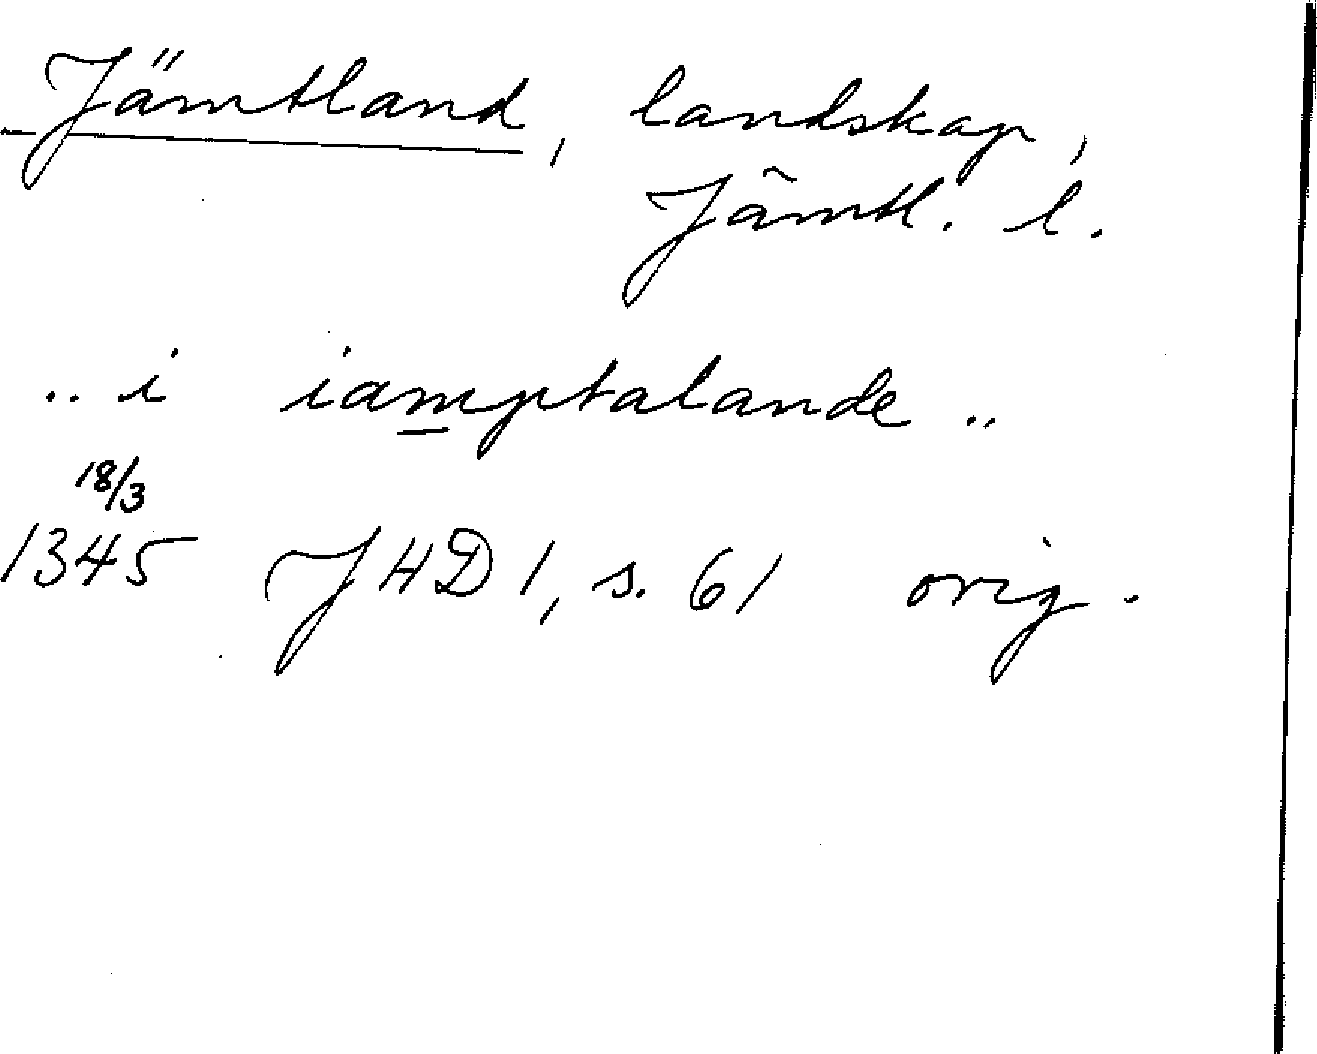 Jämtland, landskap,
Jämtl. l.
.. i iamptalande ..
18/3
1345 JHD 1, s. 61 orig.